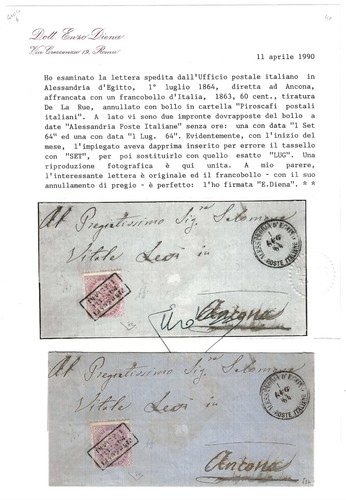 Dott. Enzo Diena
Via Crescenzio 19, Roma
11 aprile 1990
Ho esaminato la lettera spedita dall'Ufficio postale italiano in
Alessandria d'Egitto, 1° luglio 1864, diretta ad Ancona,
affrancata con un francobollo d'Italia, 1863, 60 cent., tiratura
De La Rue, annullato con bollo in cartella "Piroscafi postali
italiani". A lato vi sono due impronte dovrapposte del bollo a
date "Alessandria Poste Italiane" senza ore: una con data "1 Set
64" ed una con data "1 Lug. 64". Evidentemente, con l'inizio del
mese, l'impiegato aveva dapprima inserito per errore il tassello
con "SET", per poi sostituirlo con quello esatto "LUG". Una
riproduzione fotografica è qui unita. A mio parere,
l'interessante lettera è originale ed il francobollo - con il suo
annullamento di pregio - è perfetto: l'ho firmata "E.Diena". * *
Al Pregiatissimo Sig.re Salomone
Vitale Levi in
Ancona
POSTE ITALIANE
Al Pregiatissimo Sig.re Salomone
Vitale Levi in
Ancona
POSTE ITALIANE